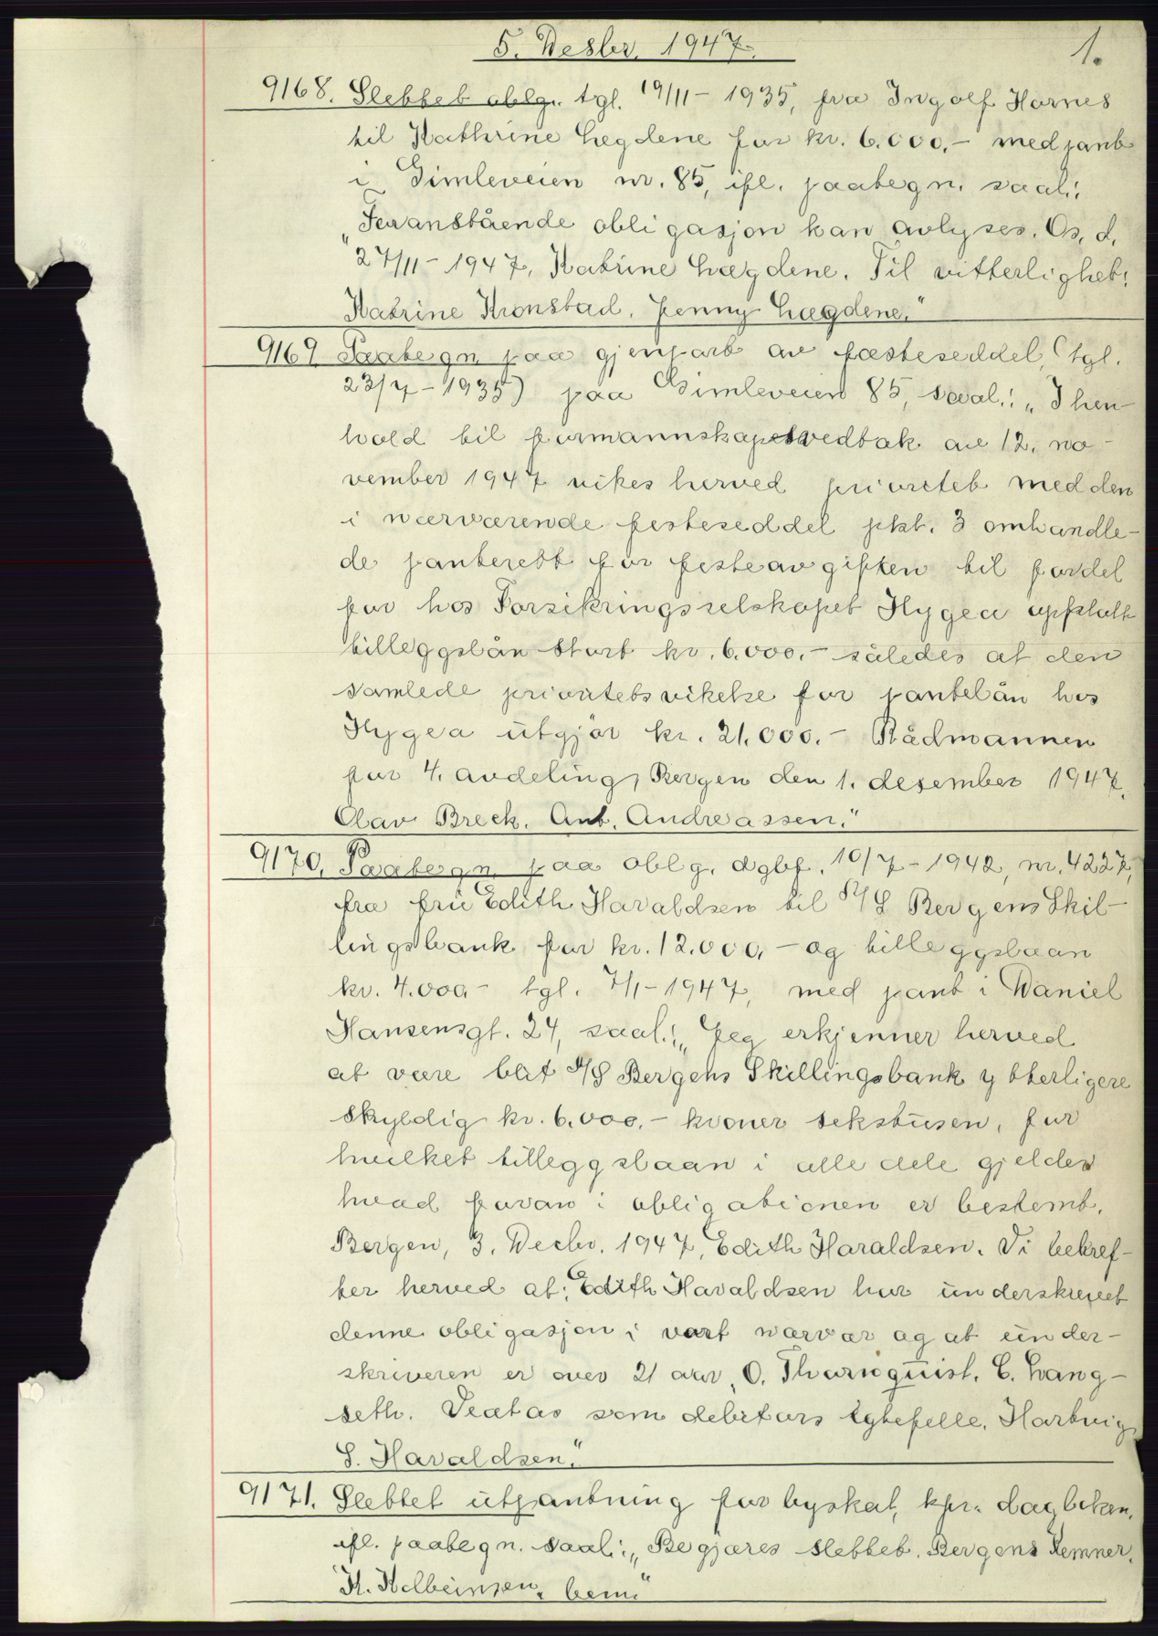 5. Desbr. 1947. 1.
9168. Slettet oblg. tgl. 19/11 - 1935, fra Ingolf Hornes
til Kathrine Lægdene for kr. 6.000,- med pant
i Gimleveien nr. 85, ifl. paategn. saal.:
„Foranstående obligasjon kan avlyses. Os, d.
27/11 - 1947, Katrine Lægdene. Til vitterlighet:
Katrine Kronstad. Jenny Lægdene."
9169 Paategn. paa gjenpart av festeseddel, (tgl.
23/7 - 1935) paa Gimleveien 85, saal.: „I hen-
hold til formannskapetsvedtak av 12. no-
vember 1947 vikes herved prioritet med den
i nærværende festeseddel pkt. 3 omhandle-
de panterett for festeavgiften til fordel
for hos Forsikringsselskapet Hygea opptatt
tilleggslån stort kr. 6.000.- således at den
samlede prioritetsvikelse for pantelån hos
Hygea utgjør kr. 21.000.- Rådmannen
for 4. avdeling, Bergen den 1. desember 1947.
Olav Breck. Ant. Andreassen."
9170. Paategn. paa oblg. dgbf. 10/7 - 1942, nr. 4227,
fra fru Edith Haraldsen til A/S Bergens Skil-
lingsbank for kr. 12.000,- og tilleggslaan
kr. 4.000,- tgl. 7/1 - 1947, med pant i Daniel
Hansensgt. 24, saal.: „Jeg erkjenner herved
at være blit A/S Bergens Skillingsbank ytterligere
skyldig kr. 6.000.- kroner sekstusen, for
hvilket tilleggslaan i alle dele gjelder
hvad foran i obligationen er bestemt.
Bergen, 3. Decbr. 1947, Edith Haraldsen. Vi bekref-
ter herved at: Edith Haraldsen har underskrevet
denne obligasjon i vort nærvær og at under-
skriveren er over 21 aar. O. Thornquist. C. Lang-
seth. Veatas som debitors egtefelle. Hartvig
S. Haraldsen."
9171. Slettet utpantning for byskat, kpr. dagbikan,
ifl. paategn. saal.: „Begjæres slettet. Bergens Kemner.
K. Kolbeinsen. bem."